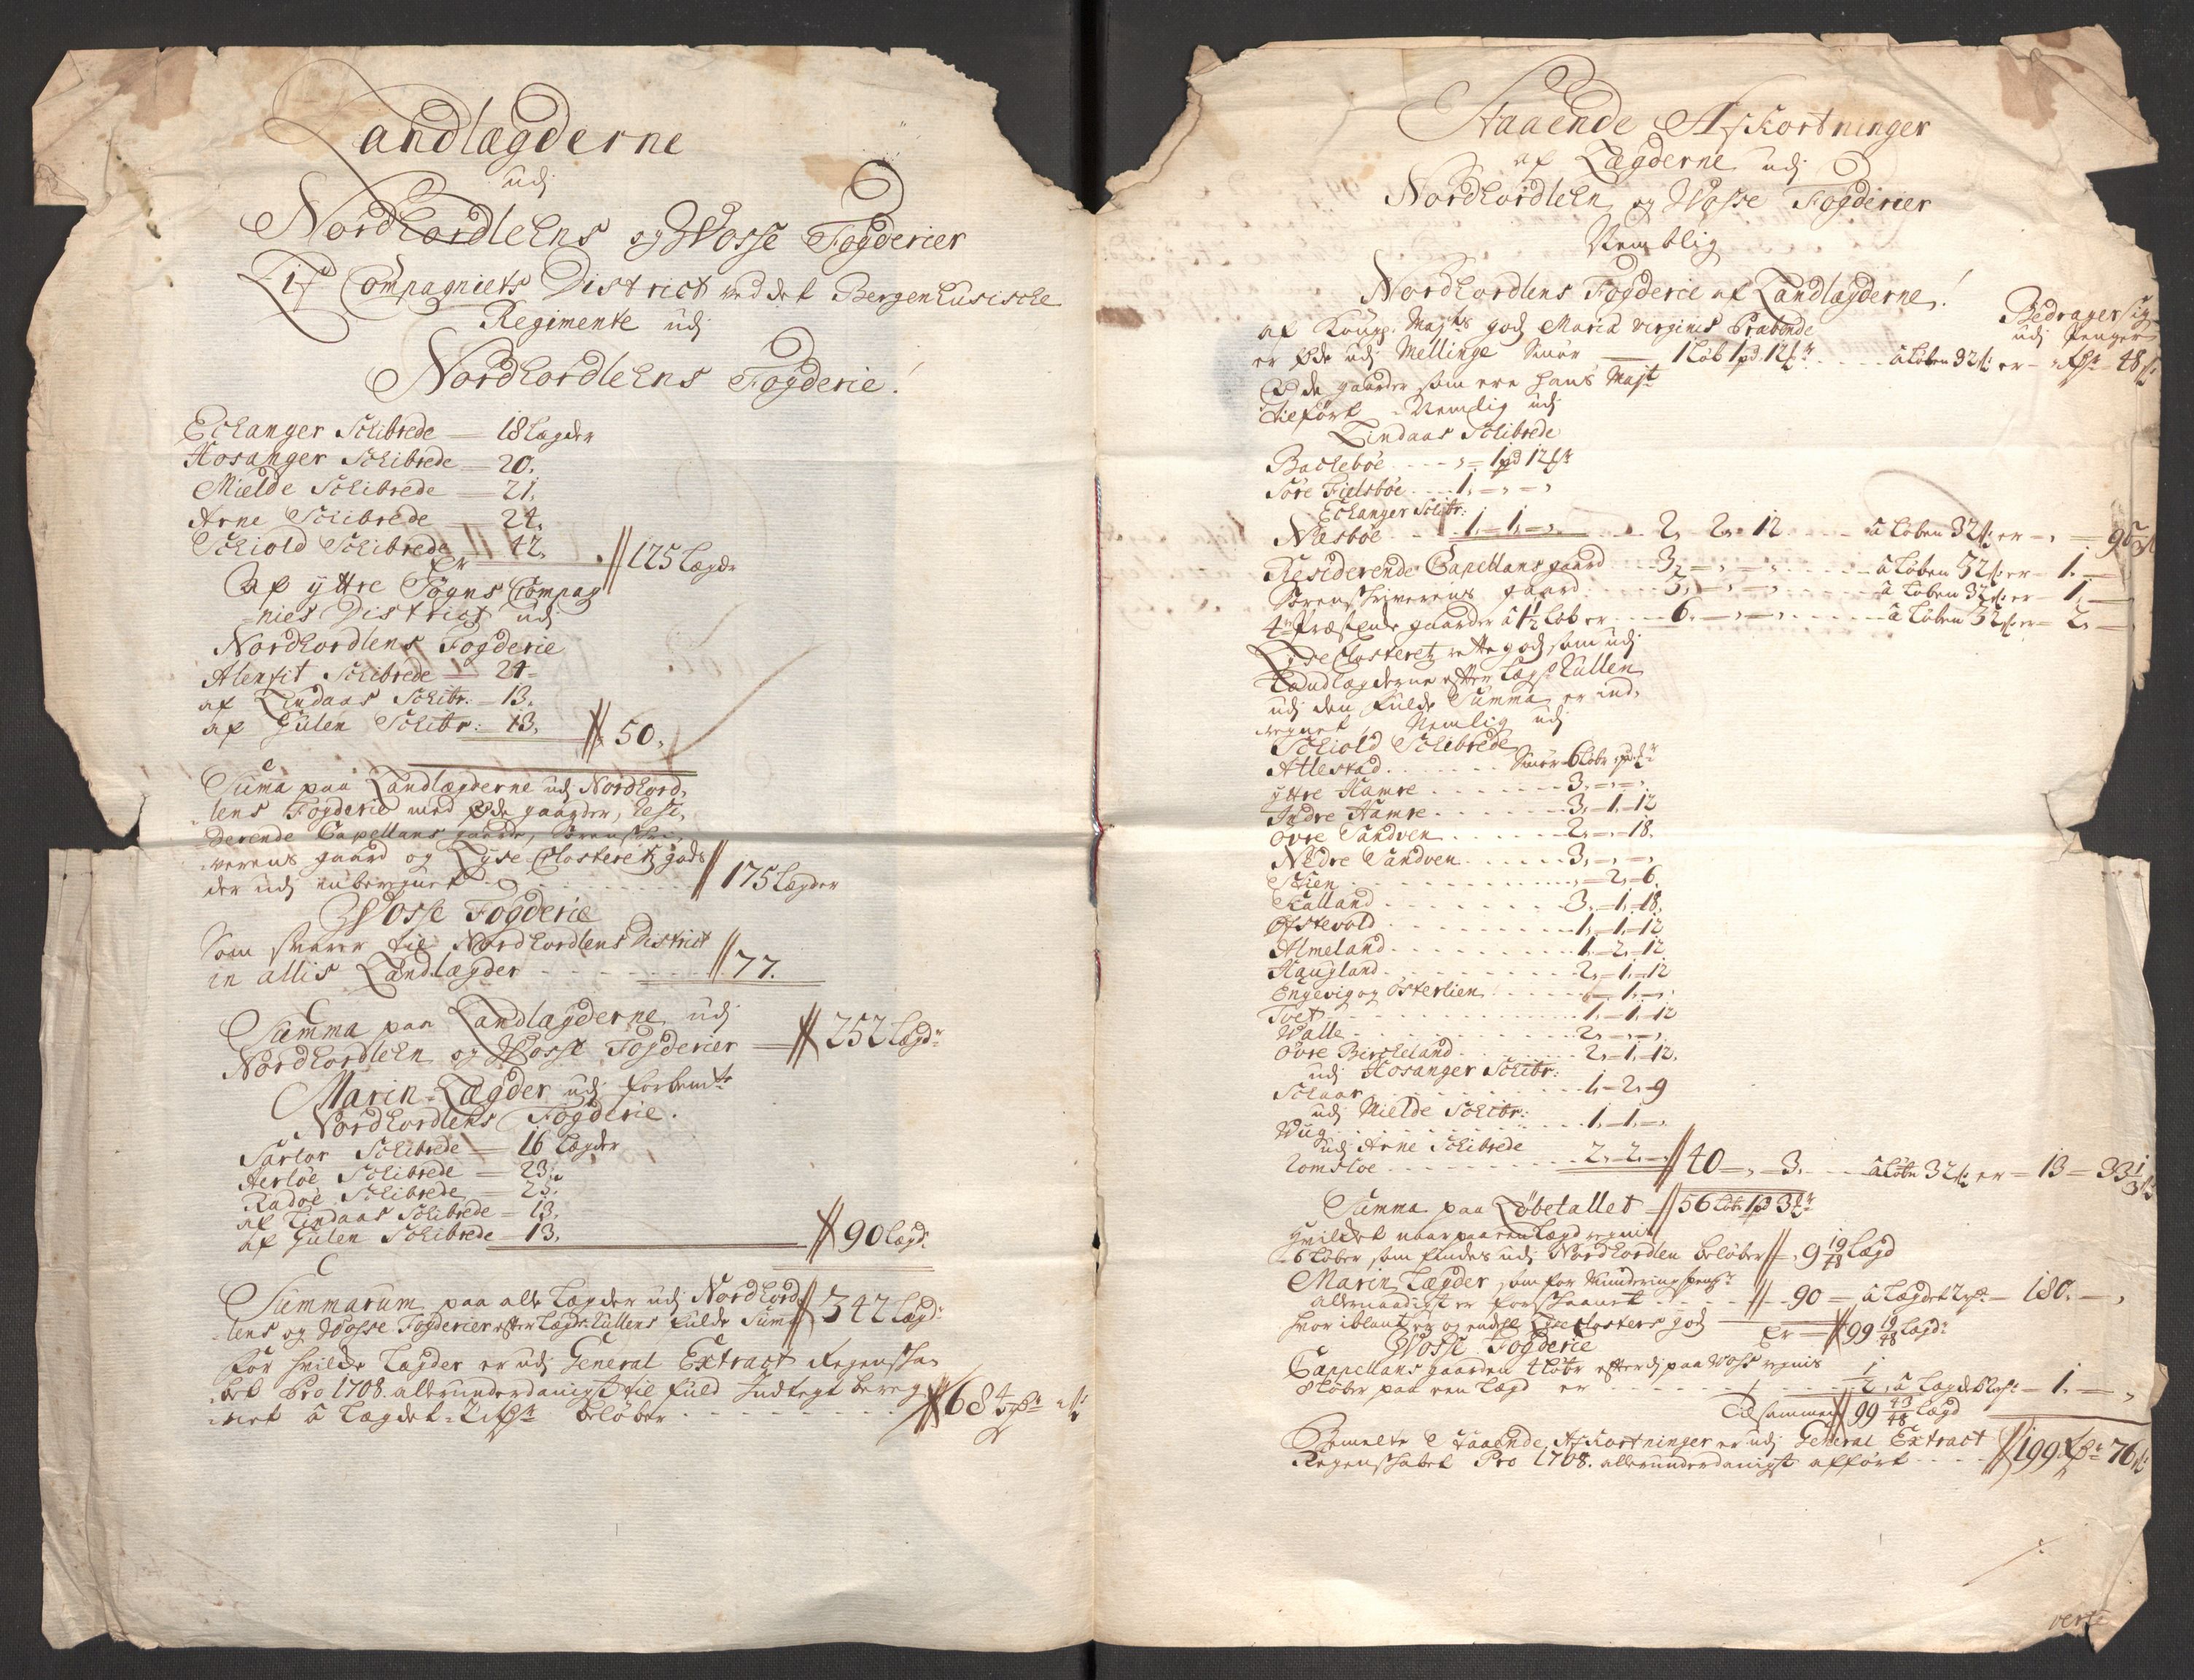 Landlægderne
udj
Nordhordlehns og Wosse Fogderier
Lif Compagniets District ved det Bergenhusische
Regimente udj
Nordhordlehns Fogderie!
Echanger Schibrede — 18 Lægder
Hosanger Schibrede — 20.
Mielde Schibrede — 21.
Arne Schibrede — 24.
Schiold Schibrede — 42.
Er // 125 Lægdr
Af yttre Sogns Compag
nies District udj
Nordhordlens Fogderie
Alenfit Schibrede — 24
af Lindaas Schibr: — 13.
af Gulen Schibr: 13. // 50.
Summa paa Landlægderne udj Nordhord,
lens Fogderie med Øde gaarder, Resi,
derende Capellans gaarde, Sorenschri,
verens gaard og Lyse Closteretz gods
der udj inberegnet // 175 Lægder
Wosse Fogderie
Som svarer til Nordhordlens District
in allis Landlægder // 77.
Summa paa Landlægderne udj
Nordhordlehn og Wosse Fogderier — // 252 Lægdr
Marin-Lægder udj forbemte
Nordhordlehns Fogderie.
Sartor Schibrede — 16 Lægder
Herløe Schibrede — 23.
Radøe Schibrede — 25.
af Lindaas Schibrede — 13.
af Gulen Schibrede — 13. // 90 Lægdr
Summarum paa alle Lægder udj Nordhord,
lens og Wosse Fogderier efter Lægds Rullens fulde Suma // 342 Lægdr
For hvilde Lægder er udj General Extract Regenscha,
bet Pro 1708. allerunderdanigst til fuld Indtegt bereg,
net â Lægdet 2 rdr beløber // 684 rdr
Staaende Afkortninger
af Lægderne udj
Nordhordlehn og Wosse Fogderier
Nemblig
Nordhordlens Fogderie af Landlægderne!
Bedrager sig
udj Penger
af Kongl. Majts gods Maria Virginis Præbende
er Øde udj Mellinge Smør — 1 Løb 1 pd 12 mr â Løben 32 s er — 48 s
Øde gaarder som ere hans Majt
tilført Nemlig udj
Lindaas Schibrede
Bachebøe — 1 pd 12 mr
Søre Fielsbøe 1.
Echanger Schibr:
Nesbøe 1. — 1. 2. 2. 12 â Løben 32 s er — 96 s
Residerende Capellans gaard 3. â Løben 32 s er — 1.
Sorenschriverens gaard 3. â Løben 32 s er — 1.
4re Præste Ende gaarder â 1½ Løb er 6. â Løben 32 s er — 2.
Lyse Closteretz rette gods, som udj
Landlægderne efter Lægds Rullen
udj den fulde Summa er ind,
regnet Nemlig udj
Schiold Schibrede
Allestad Smør 6 Løbr
yttre Hamre 3.
Indre Hamre 3. — 1. — 12
Øvre Sandven 2. — 18.
Nedre Sandven 3.
Skien — 2. — 6.
Kalland 3. — 1. — 18.
Øfstevold 1. — 1. — 12
Almeland 1. — 2. — 12
Haugland 2. — 1. — 12
Engevig og Østerlien — 1.
Tvet 1. — 1. — 12
Walle 2.
Øvre Bircheland 2. — 1. — 12.
udj Hosanger Schibr:
Schaar 1. — 2. — 9
udj Mielde Schibr:
Wiig 1. — 1.
udj Arne Schibrede
Romsloe 2. — 2. // 40 — 3. â Løbn 32 s er — 13 — 33⅓ s
Summa paa Løbetallet // 56 Løbr 1 pd 3 mr
Hvilcket naar paa een Lægd regnis
6 Løber som findes udj Nordhordlen beløber // 9 19/48 Lægd
Marin Lægder, som for Munderings penge
allernaadigst er forschaanet // 90 — â Lægdet 2 rdr — 180.
hvor iblant er og endeel Lyse Closters gods
Er // 99 19/48 Lægdr
Wosse Fogderie
Cappellans gaarden 4 Løbr efterdj paa Woss regnis
8 Løber paa een Lægd er ½ â Lægdet 2 rdr — 1.
Tilsammen // 99 43/48 Lægd
Bemelte Staaende Afkortninger er udj General Extract
Regenschabet Pro 1708. allerunderdanigst afført // 199 rdr 76 s
verte